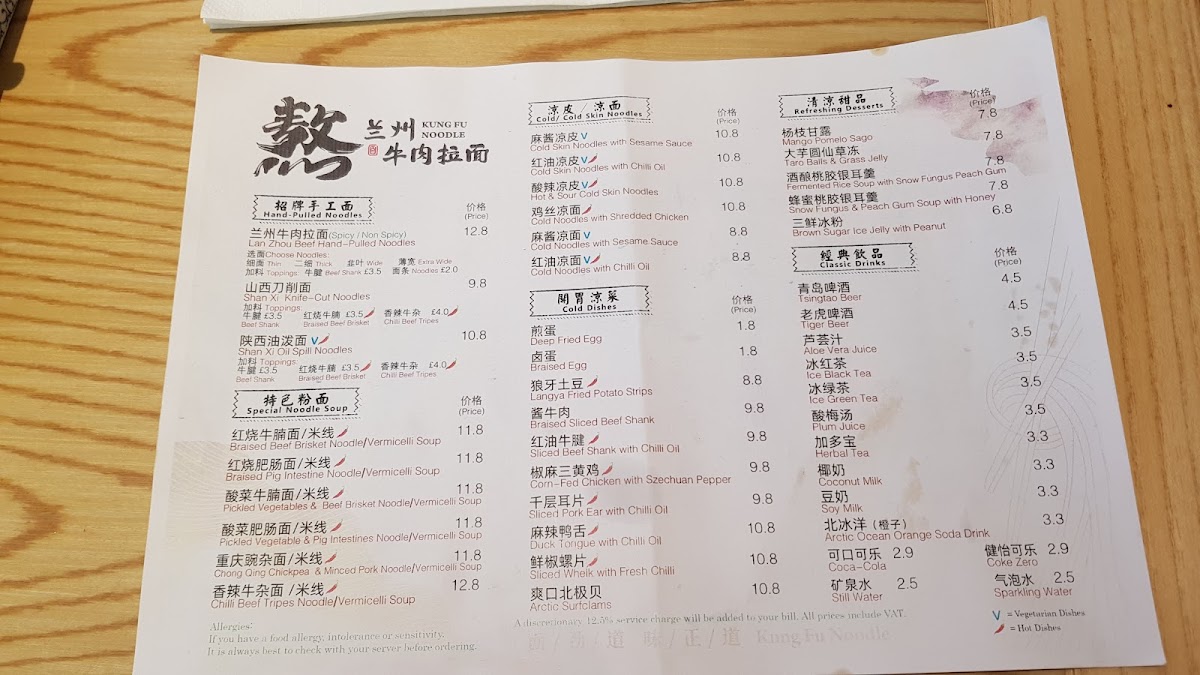 熬
兰州
牛肉拉面
KUNG FU
NOODLE
招牌手工面
Hand-Pulled Noodles
价格
(Price)
兰州牛肉拉面(Spicy / Non Spicy)
12.8
Lan Zhou Beef Hand-Pulled Noodles
选面Choose Noodles:
细面 Thin 二细 Thick 韭叶 Wide 薄宽 Extra Wide
加料 Toppings: 牛腱 Beef Shank £3.5 面条 Noodles £2.0
山西刀削面
9.8
Shan Xi Knife-Cut Noodles
加料 Toppings:
牛腱 £3.5 红烧牛腩 £3.5 香辣牛杂 £4.0
Beef Shank Braised Beef Brisket Chilli Beef Tripes
陕西油泼面 V
10.8
Shan Xi Oil Spill Noodles
加料 Toppings:
牛腱 £3.5 红烧牛腩 £3.5 香辣牛杂 £4.0
Beef Shank Braised Beef Brisket Chilli Beef Tripes
特色粉面
Special Noodle Soup
价格
(Price)
红烧牛腩面/米线
11.8
Braised Beef Brisket Noodle/Vermicelli Soup
红烧肥肠面/米线
11.8
Braised Pig Intestine Noodle/Vermicelli Soup
酸菜牛腩面/米线
11.8
Pickled Vegetables & Beef Brisket Noodle/Vermicelli Soup
酸菜肥肠面/米线
11.8
Pickled Vegetable & Pig Intestines Noodle/Vermicelli Soup
重庆豌杂面/米线
11.8
Chong Qing Chickpea & Minced Pork Noodle/Vermicelli Soup
香辣牛杂面/米线
12.8
Chilli Beef Tripes Noodle/Vermicelli Soup
Allergies:
If you have a food allergy, intolerance or sensitivity.
It is always best to check with your server before ordering.
凉皮/凉面
Cold/ Cold Skin Noodles
价格
(Price)
麻酱凉皮 V
10.8
Cold Skin Noodles with Sesame Sauce
红油凉皮 V
10.8
Cold Skin Noodles with Chilli Oil
酸辣凉皮 V
10.8
Hot & Sour Cold Skin Noodles
鸡丝凉面
10.8
Cold Noodles with Shredded Chicken
麻酱凉面 V
8.8
Cold Noodles with Sesame Sauce
红油凉面 V
8.8
Cold Noodles with Chilli Oil
開胃涼菜
Cold Dishes
价格
(Price)
煎蛋
1.8
Deep Fried Egg
卤蛋
1.8
Braised Egg
狼牙土豆
8.8
Langya Fried Potato Strips
酱牛肉
9.8
Braised Sliced Beef Shank
红油牛腱
9.8
Sliced Beef Shank with Chilli Oil
椒麻三黄鸡
9.8
Corn-Fed Chicken with Szechuan Pepper
千层耳片
9.8
Sliced Pork Ear with Chilli Oil
麻辣鸭舌
10.8
Duck Tongue with Chilli Oil
鲜椒螺片
10.8
Sliced Whelk with Fresh Chilli
爽口北极贝
10.8
Arctic Surfclams
A discretionary 12.5% service charge will be added to your bill. All prices include VAT.
面/劲/道 味/正/道 Kung Fu Noodle
清涼甜品
Refreshing Desserts
价格
(Price)
杨枝甘露
7.8
Mango Pomelo Sago
大芋圆仙草冻
7.8
Taro Balls & Grass Jelly
酒酿桃胶银耳羹
7.8
Fermented Rice Soup with Snow Fungus Peach Gum
蜂蜜桃胶银耳羹
7.8
Snow Fungus & Peach Gum Soup with Honey
三鲜冰粉
6.8
Brown Sugar Ice Jelly with Peanut
經典飲品
Classic Drinks
价格
(Price)
青岛啤酒
4.5
Tsingtao Beer
老虎啤酒
4.5
Tiger Beer
芦荟汁
3.5
Aloe Vera Juice
冰红茶
3.5
Ice Black Tea
冰绿茶
3.5
Ice Green Tea
酸梅汤
3.5
Plum Juice
加多宝
3.3
Herbal Tea
椰奶
3.3
Coconut Milk
豆奶
3.3
Soy Milk
北冰洋（橙子）
3.3
Arctic Ocean Orange Soda Drink
可口可乐 2.9 健怡可乐 2.9
Coca-Cola Coke Zero
矿泉水 2.5 气泡水 2.5
Still Water Sparkling Water
V = Vegetarian Dishes
= Hot Dishes